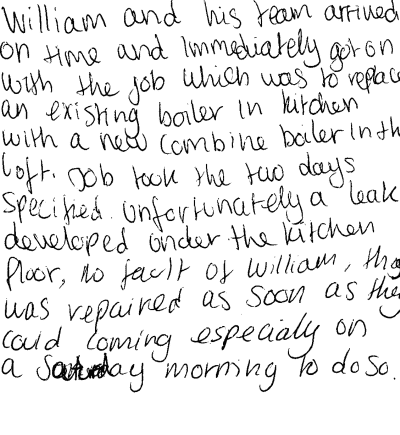 William and his team arrived
on time and immediately got on
with the job which was to replac
an existing boiler in kitchen
with a new combine boiler in th
loft. Job took the two days
specified. Unfortunately a leak
developed under the kitchen
floor, no fault of William, tho
was repaired as soon as the
could coming especially on
a Saturday morning to do so.